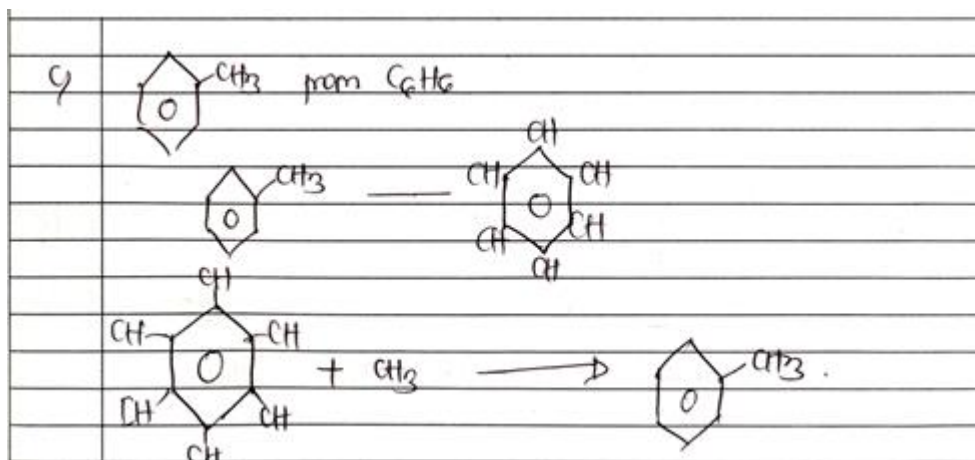 c) CH3 from C6H6
CH3
CH
CH CH
CH CH
CH
CH
CH CH
+ CH3 CH3.
CH CH
CH